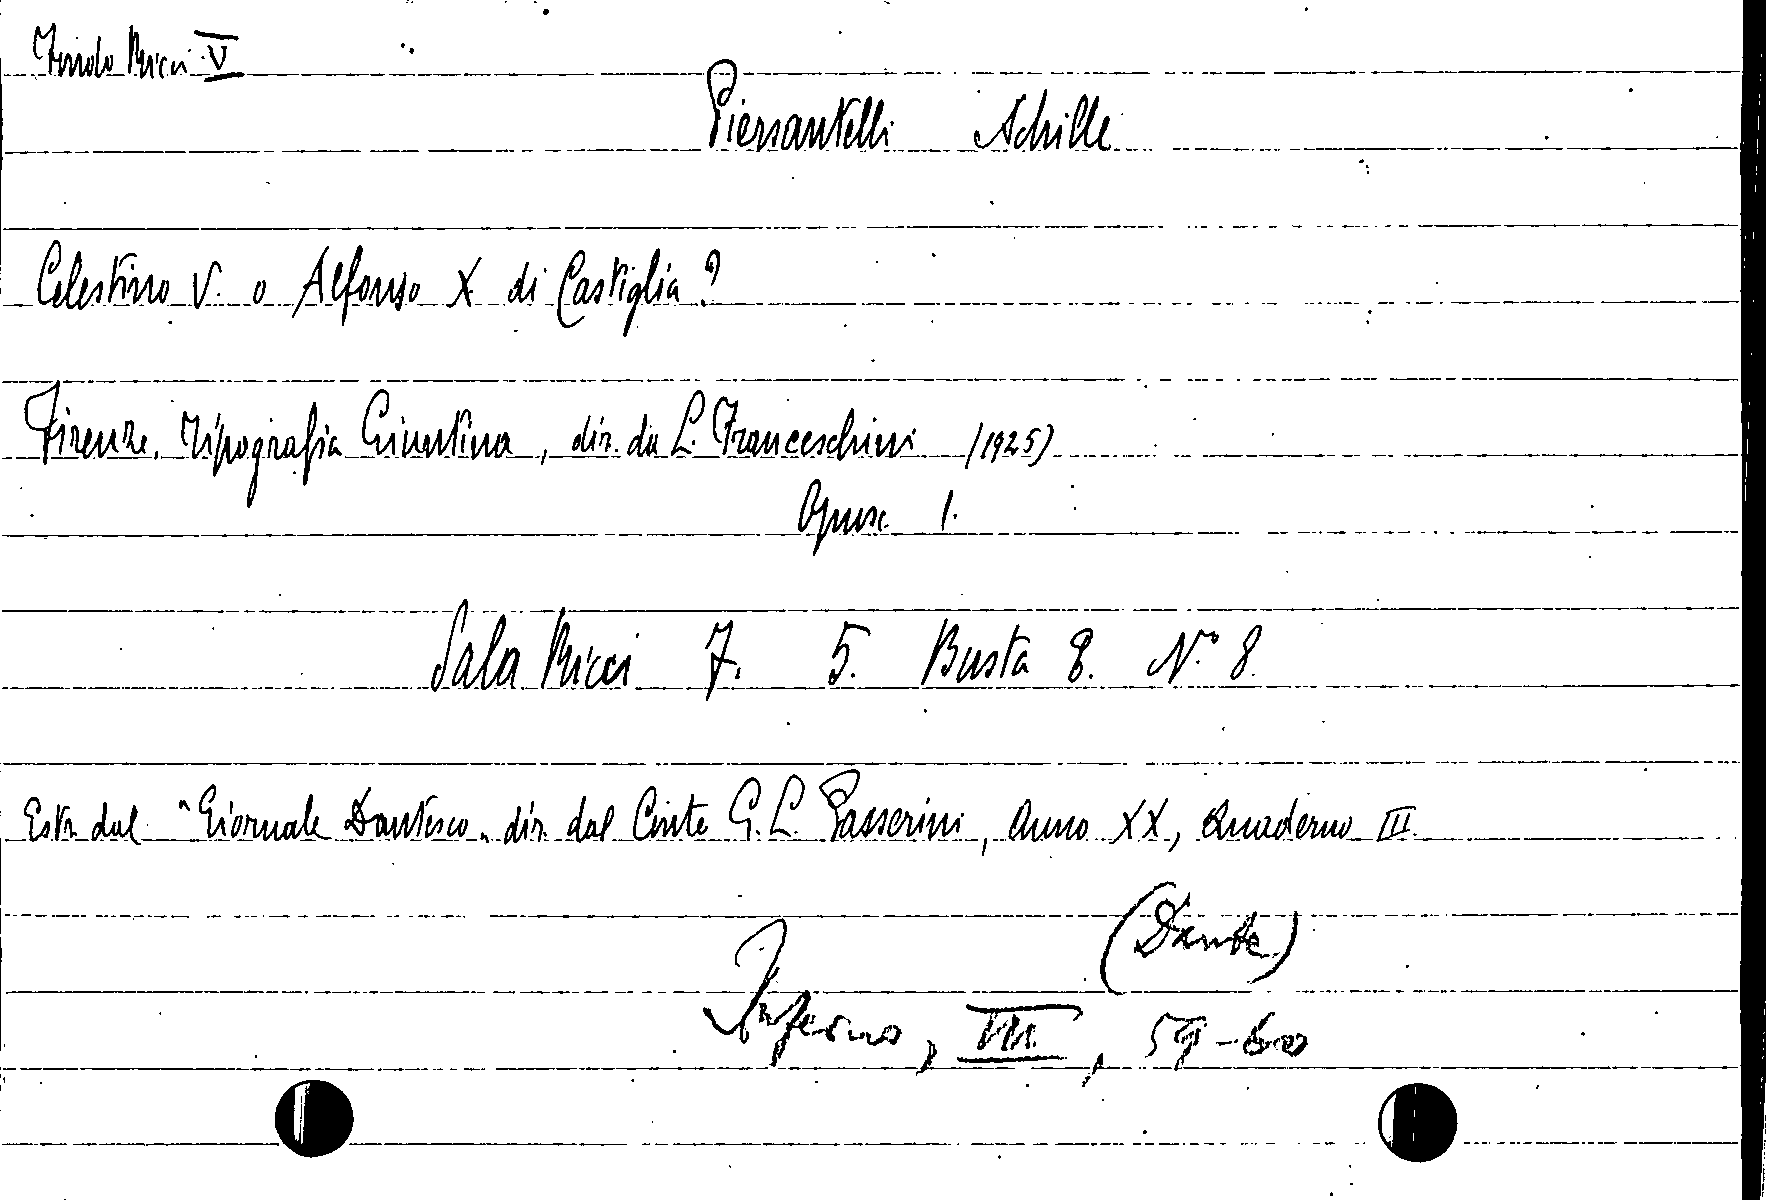 Fondo Ricci V
Piersantelli Achille
Celestino V. o Alfonso X di Castiglia?
Firenze, Tipografia Giuntina, dir. da L. Franceschini (1925)
Opusc. 1.
Sala Ricci 7. 5. Busta 8. N.° 8.
Estr. dal "Giornale Dantesco" dir. dal Conte G. L. Passerini, Anno XX, Quaderno III.
(Dante)
Inferno, III, 59-60